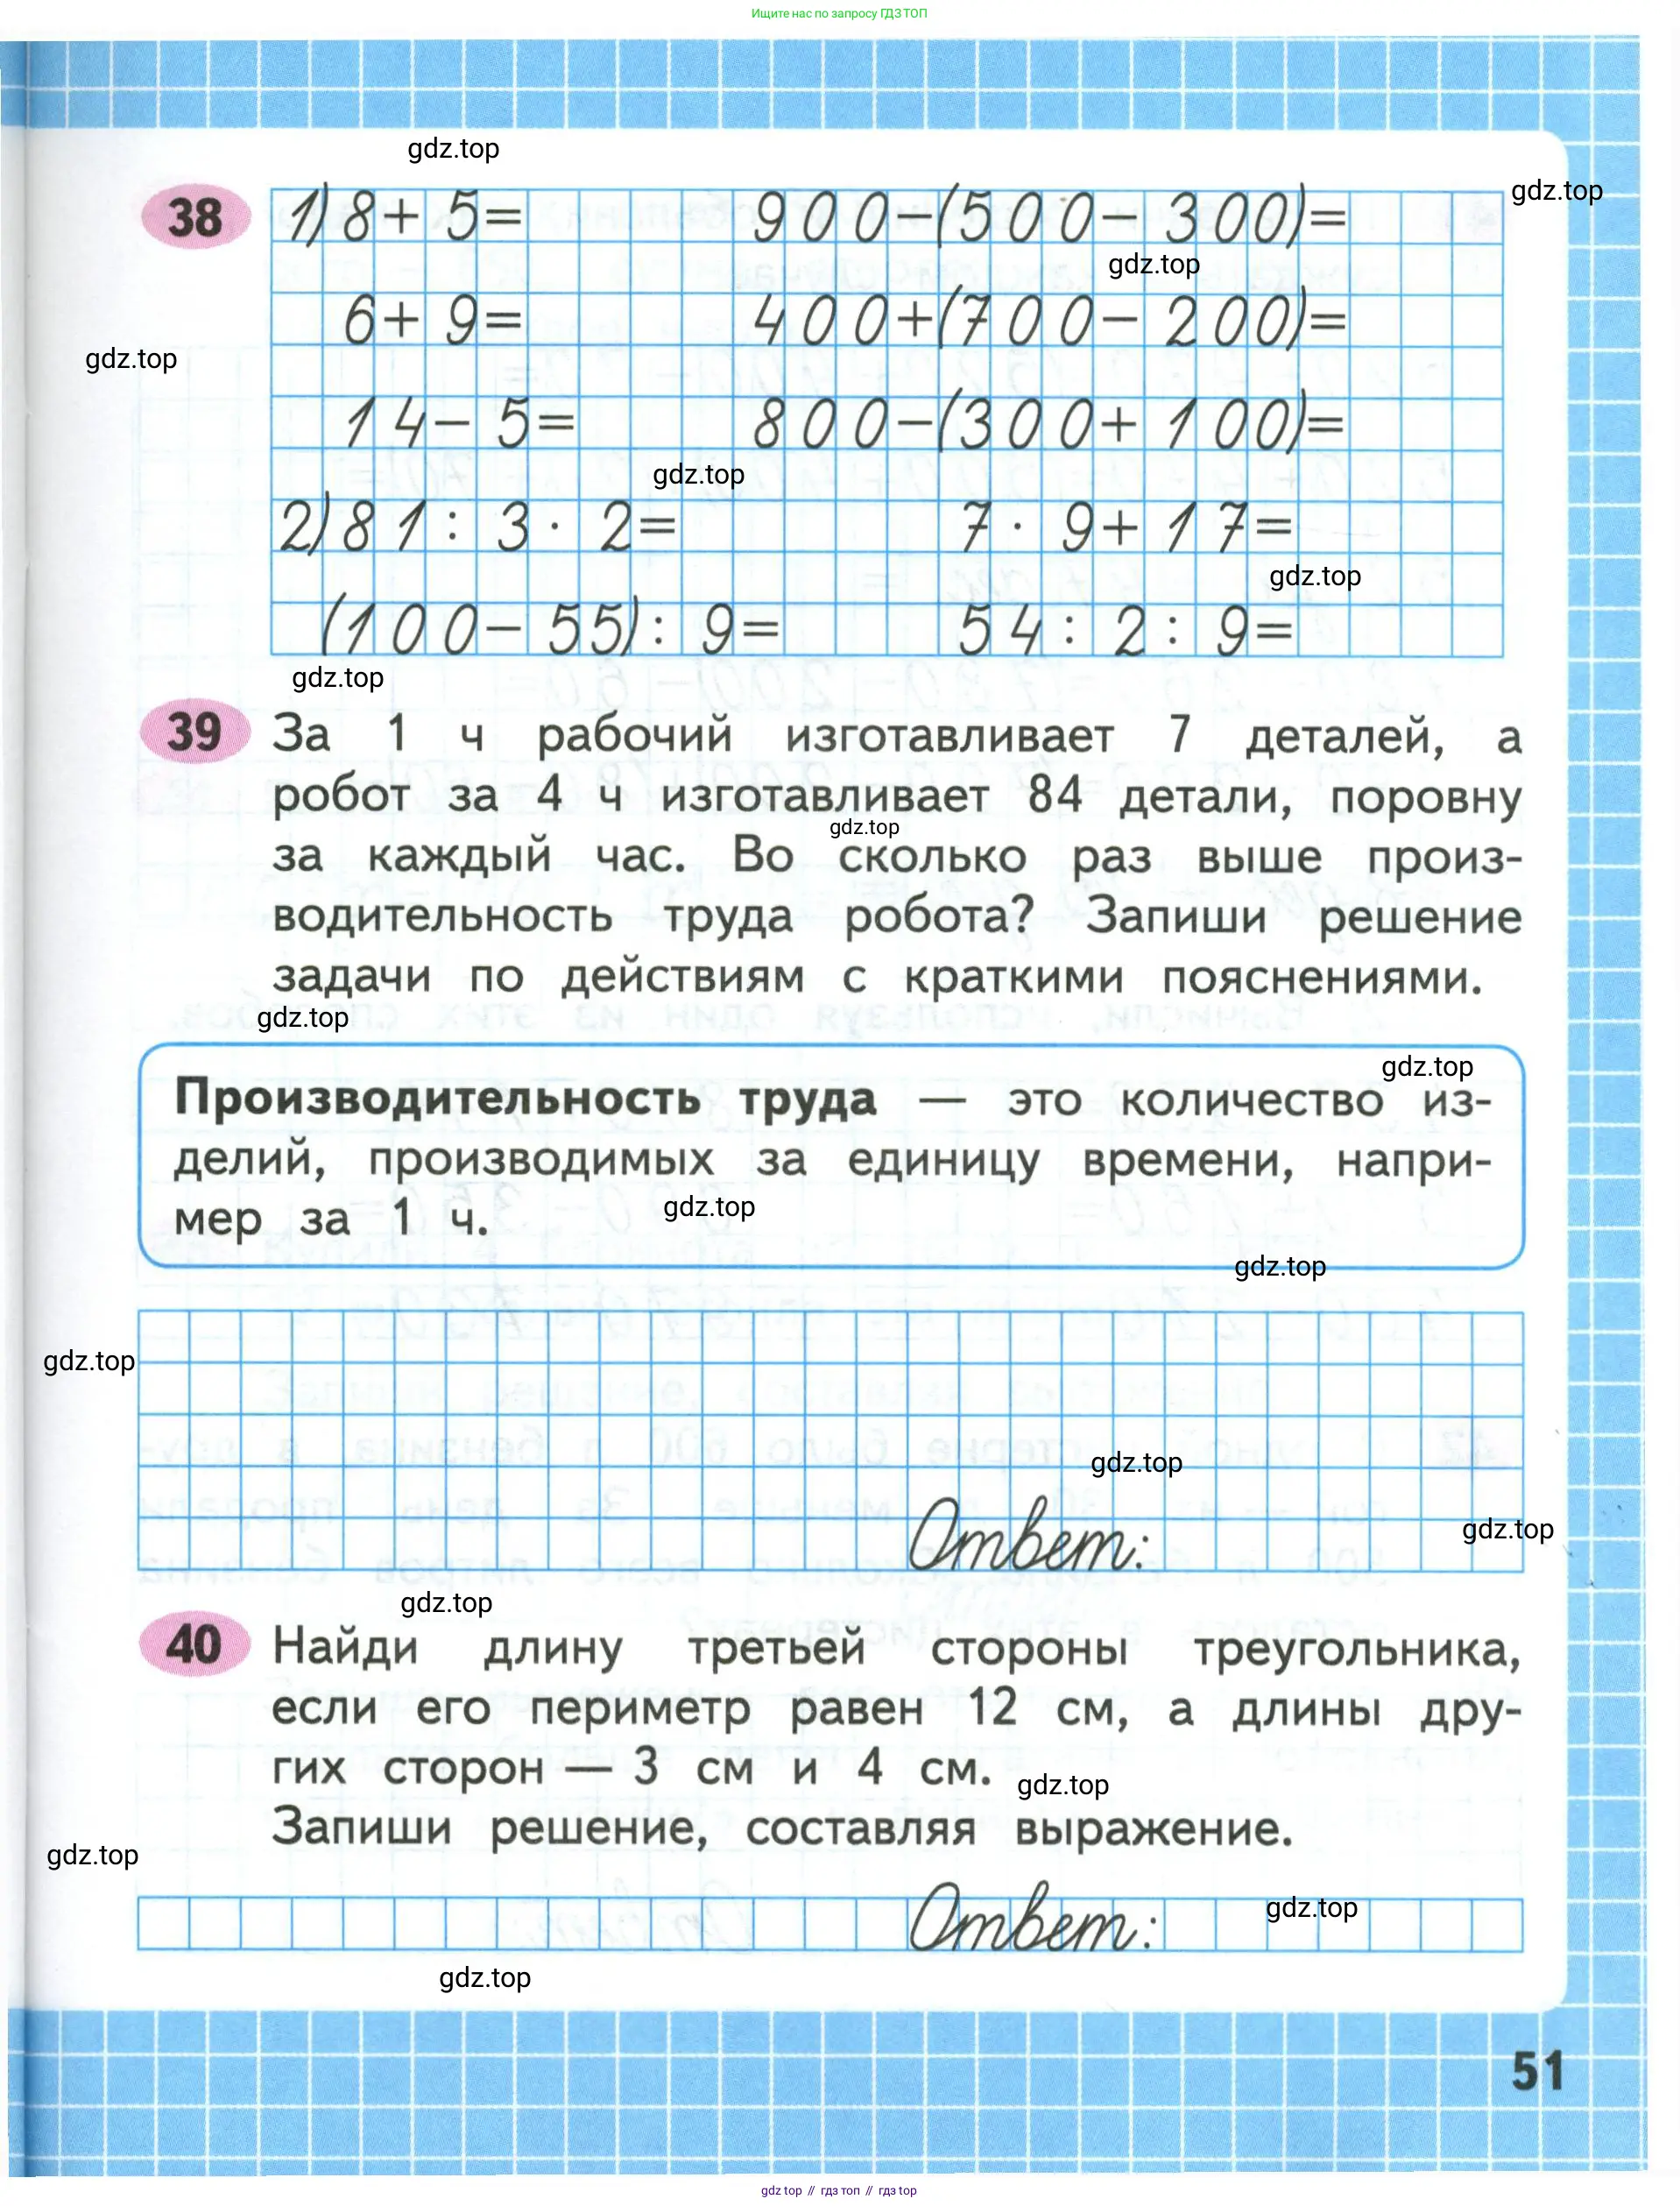 Ищите нас по запросу ГДЗ ТОП
gdz.top
38 1) 8+5= 900-(500-300)=
gdz.top
gdz.top
6+9= 400+(700-200)=
gdz.top
14-5= 800-(300+100)=
gdz.top
2) 81:3·2= 7·9+17=
gdz.top
(100-55):9= 54:2:9=
gdz.top
39 За 1 ч рабочий изготавливает 7 деталей, а
робот за 4 ч изготавливает 84 детали, поровну
gdz.top
за каждый час. Во сколько раз выше произ-
водительность труда робота? Запиши решение
задачи по действиям с краткими пояснениями.
gdz.top
gdz.top
Производительность труда — это количество из-
делий, производимых за единицу времени, напри-
gdz.top
мер за 1 ч.
gdz.top
gdz.top
gdz.top
Ответ:
gdz.top
gdz.top
40 Найди длину третьей стороны треугольника,
если его периметр равен 12 см, а длины дру-
гих сторон — 3 см и 4 см.
gdz.top
Запиши решение, составляя выражение.
gdz.top
Ответ:
gdz.top
gdz.top
51
gdz top // гдз топ // гдз top